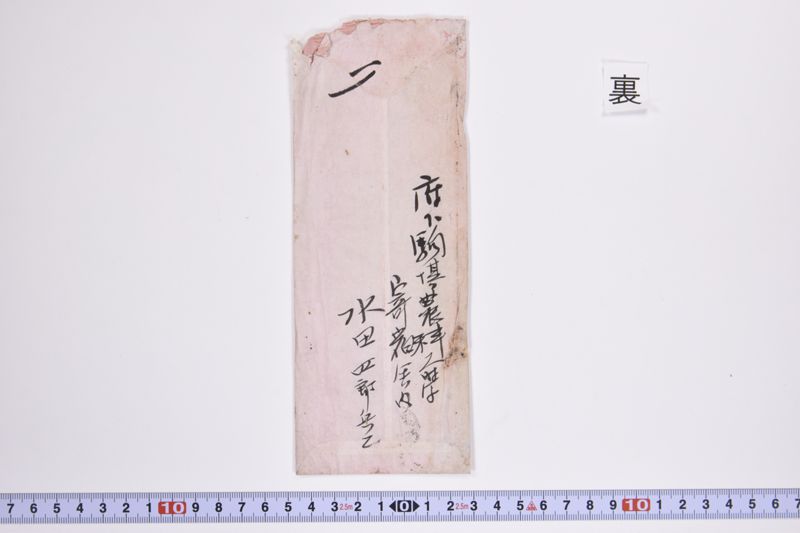 府下駒場農科大学
寄宿舎内
水田四郎兵エ
裏
7 6 5 4 3 2 1 10 9 8 7 6 5 4 3 2.5m 2 1 0 1 2 2.5m 3 4 5 6 7 8 9 10 1 2 3 4 5 6 7